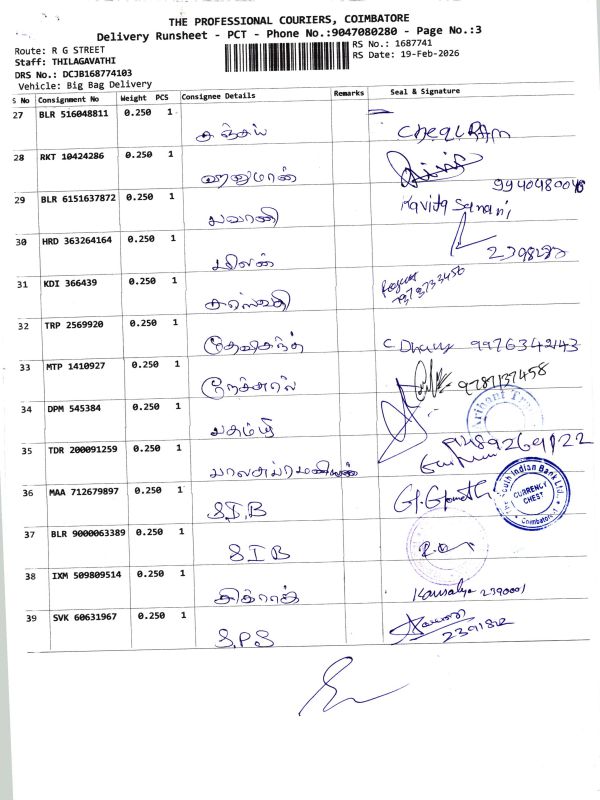 THE PROFESSIONAL COURIERS, COIMBATORE
Delivery Runsheet - PCT - Phone No.:9047080280 - Page No.:3
Route: R G STREET
Staff: THILAGAVATHI
DRS No.: DCJB168774103
Vehicle: Big Bag Delivery
RS No.: 1687741
RS Date: 19-Feb-2026
S No Consignment No Weight PCS Consignee Details Remarks Seal & Signature
27 BLR 516048811 0.250 1 சஞ்சய்
28 RKT 10424286 0.250 1 ஹனுமான் 9940480046
29 BLR 6151637872 0.250 1 பவானி Kavita
30 HRD 363264164 0.250 1 மிலன்
31 KDI 366439 0.250 1 சரஸ்வதி
32 TRP 2569920 0.250 1 9976342143
33 MTP 1410927 0.250 1 9787137458
34 DPM 545384 0.250 1
Arihant
35 TDR 200091259 0.250 1 பாலசுப்ரமணியன்
36 MAA 712679897 0.250 1 S.I.B
The South Indian Bank Ltd.
CURRENCY
CHEST
Coimbatore-1
37 BLR 9000063389 0.250 1 S I B
38 IXM 509809514 0.250 1 Kausalya 2390001
39 SVK 60631967 0.250 1 S.P.S